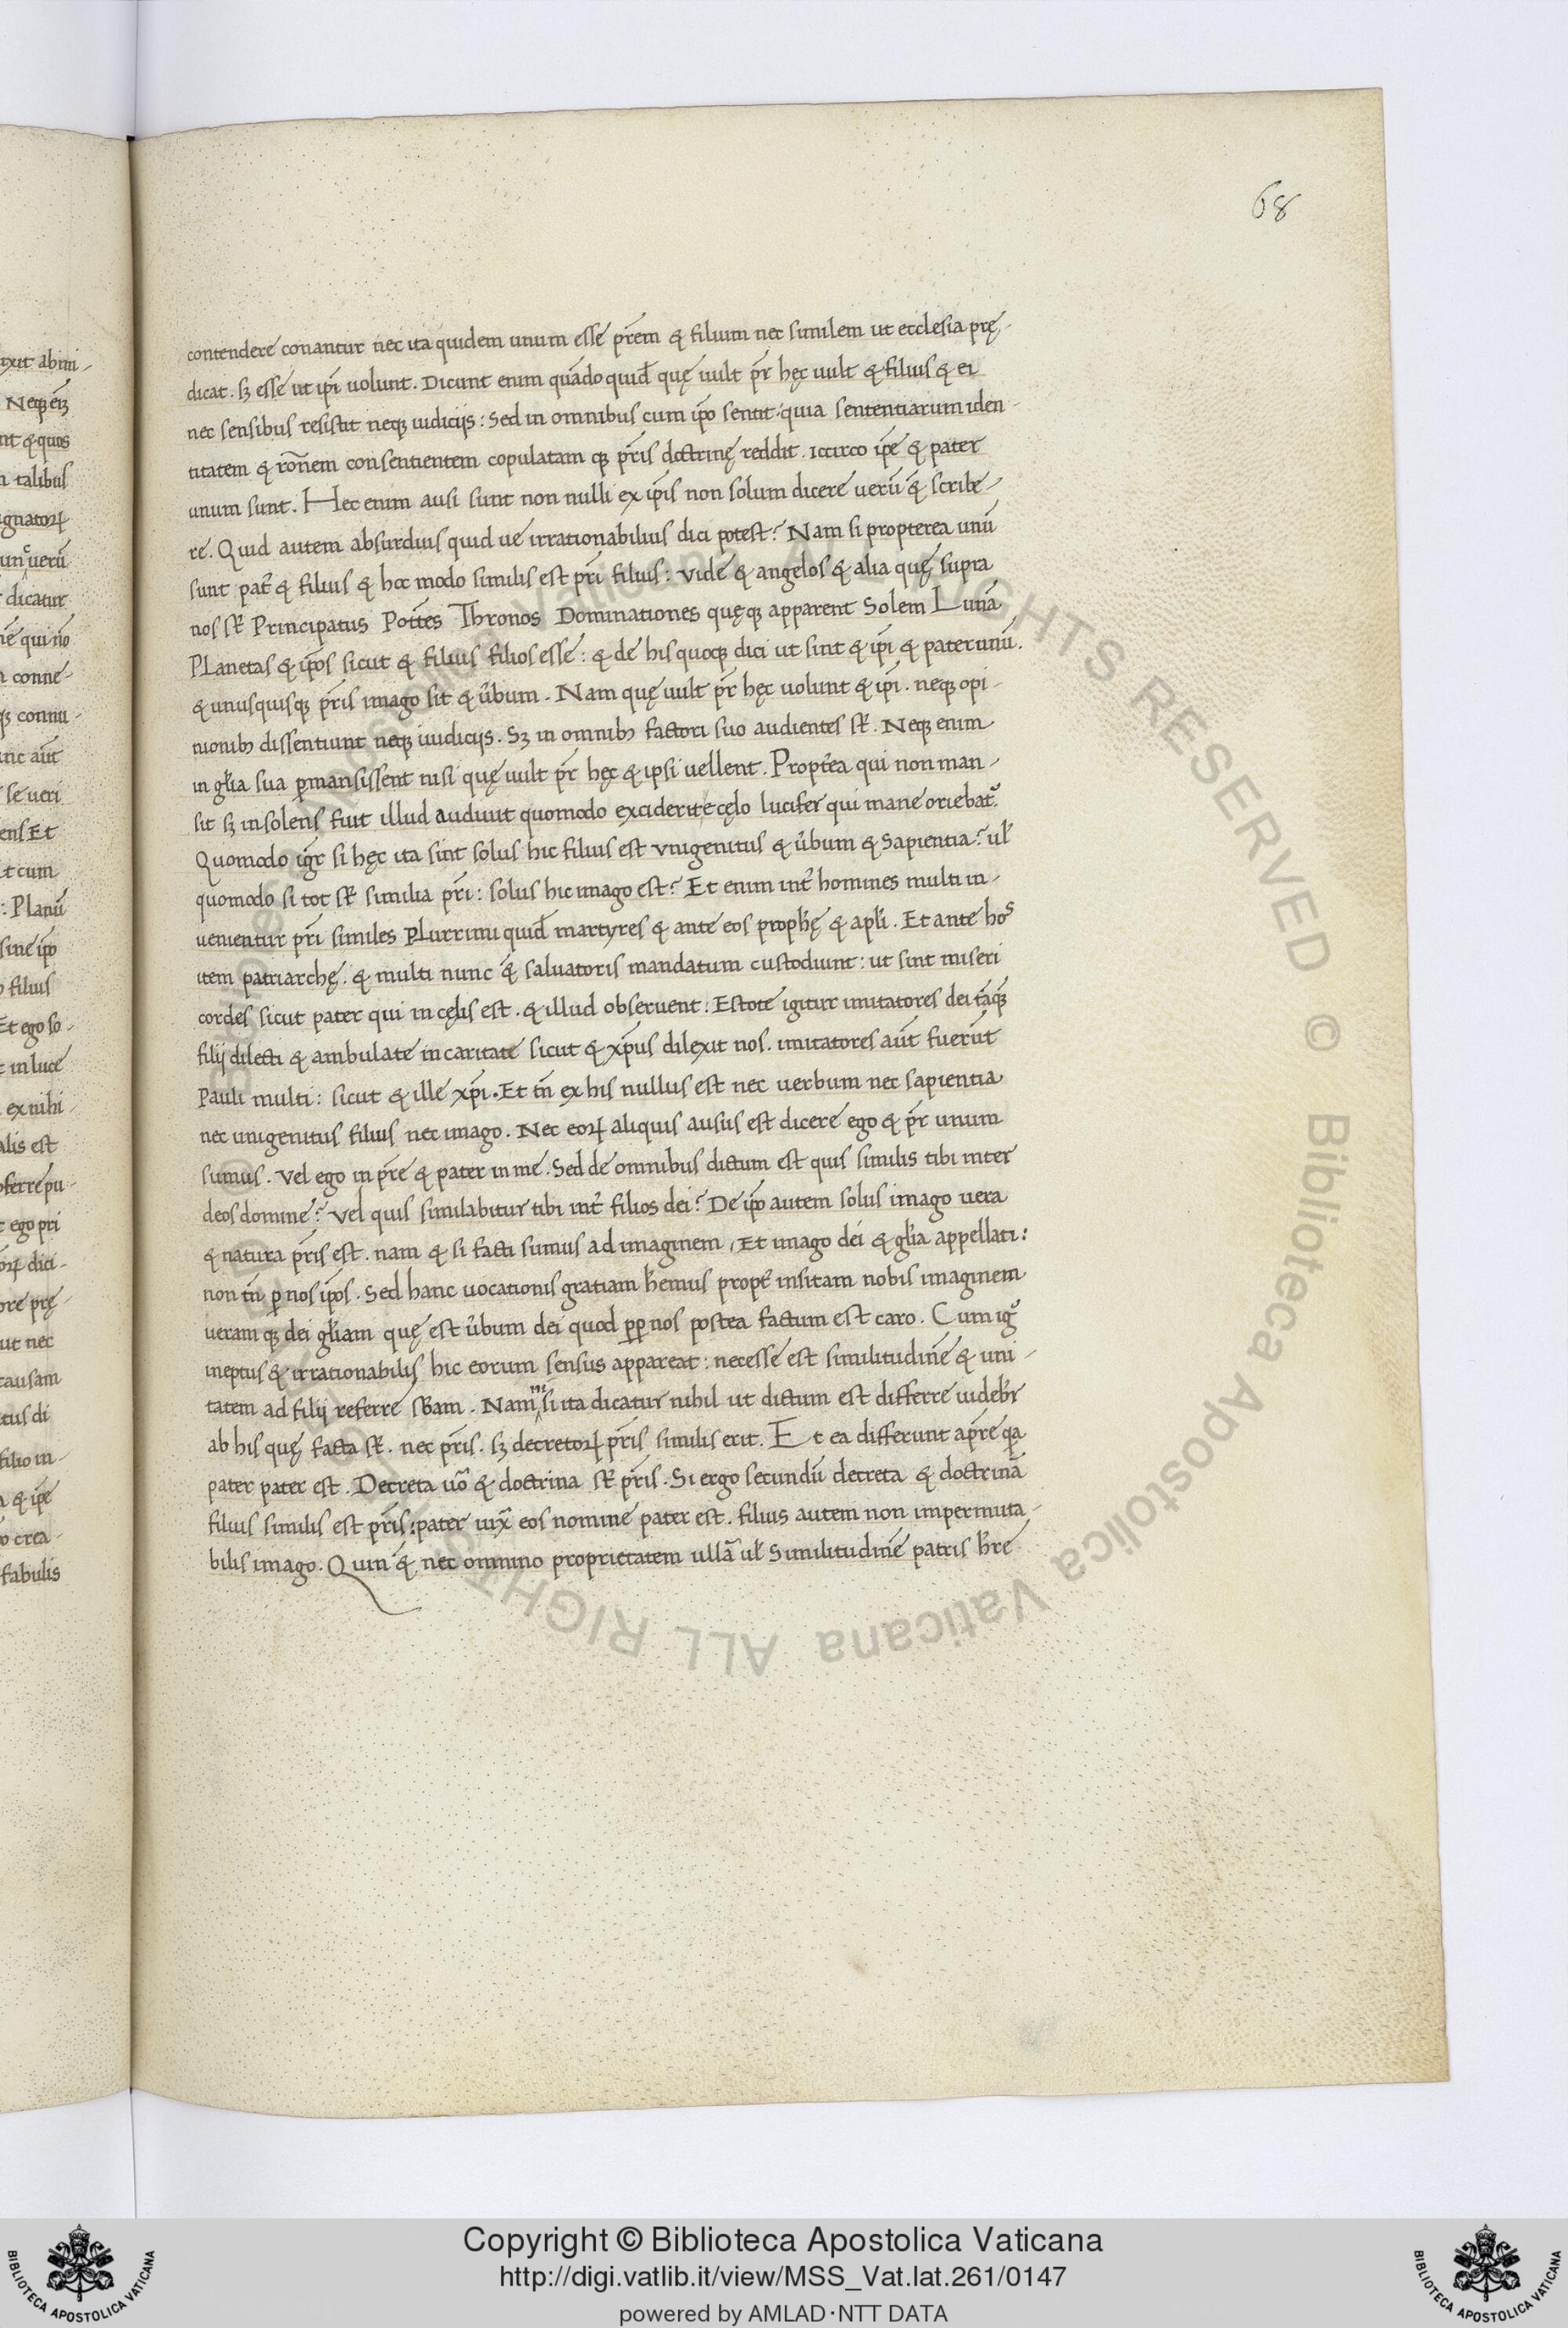 68
contendere conantur nec ita quidem unum esse pr̄em & filium nec similem ut ecclesia prę-
dicat. sꝫ esse ut ip̄i uolunt. Dicunt enim quādo quid̄ quę uult pr̄ hęc uult & filius & ei
nec sensibus resistit neqꝫ iudicijs: Sed in omnibus cum ip̄o sentit. quia sententiarum iden-
titatem & rōnem consentientem copulatam qꝫ pr̄is doctrinę reddit. iccirco ip̄e & pater
unum sunt. Hec enim ausi sunt non nulli ex ip̄is non solum dicere uerū &̄ scribe-
re. Quid autem absurdius quid ue irrationabilius dici potest? Nam si propterea unū
sunt pat̄ & filius & hoc modo similis est pr̄i filius: vide & angelos & alia quę supra
nos st̄ Principatus Pot̄tes Thronos Dominationes quęqꝫ apparent Solem Lunā
Planetas & ip̄os sicut & filius filios esse: & de his quoqꝫ dici ut sint & ip̄i & pater unū.
& unusquisqꝫ pr̄is imago sit & ūbum. Nam quę uult pr̄ hęc uolunt & ip̄i. neqꝫ opi-
nionibꝫ dissentiunt neqꝫ iudicijs. Sꝫ in omnibꝫ factori suo audientes st̄. Neqꝫ enim
in gl̄ia sua ꝑmansissent nisi quę uult pr̄ hęc & ipsi uellent. Propt̄ea qui non man-
sit sꝫ insolens fuit illud audiuit quomodo exciderit e cęlo lucifer qui mane oriebat᷑.
Quomodo igr̄ si hęc ita sint solus hic filius est vnigenitus & ūbum & Sapientia? ul̄
quomodo si tot st̄ similia pr̄i: solus hic imago est? Et enim int̄ homines multi in-
uenientur pr̄i similes Plurrimi quid̄ martyres & ante eos proph̄ę & apl̄i. Et ante hos
item patriarchę. & multi nunc &̄ saluatoris mandatum custodiunt: ut sint miseri
cordes sicut pater qui in cęlis est. & illud obseruent: Estote igitur imitatores dei tāqꝫ
filij dilecti & ambulate in caritate sicut & xp̄us dilexit nos. imitatores aūt fuerūt
Pauli multi: sicut & ille xp̄i. Et tn̄ ex his nullus est nec uerbum nec sapientia
nec unigenitus filius nec imago. Nec eoꝝ aliquis ausus est dicere ego & pr̄ unum
sumus. Vel ego in pr̄e & pater in me. Sed de omnibus dictum est quis similis tibi inter
deos domine? Vel quis similabitur tibi int̄ filios dei? De ip̄o autem solus imago uera
& natura pr̄is est. nam & si facti sumus ad imaginem, Et imago dei & gl̄ia appellati:
non tn̄ ꝑ nos ip̄os. Sed hanc uocationis gratiam h̄emus propt̄ insitam nobis imaginem
ueram qꝫ dei gl̄iam quę est ūbum dei quod pp̄ nos postea factum est caro. Cum ig᷑
ineptus & irrationabilis hic eorum sensus appareat: necesse est similitudinē & uni-
tatem ad filij referre sb̄am. Nam ni si ita dicatur nihil ut dictum est differre uideb̄r
ab his quę facta st̄. nec pr̄is. sꝫ decretoꝝ pr̄is similis erit. Et ea differunt a pr̄e qa
pater pater est. Decreta uō & doctrina st̄ pr̄is. Si ergo secundū decreta & doctrinā
filius similis est pr̄is: pater iux̄ eos nomine pater est. filius autem non impermuta-
bilis imago. Quin &̄ nec omnino proprietatem ullā ul̄ Similitudinē patris h̄re
Copyright © Biblioteca Apostolica Vaticana
http://digi.vatlib.it/view/MSS_Vat.lat.261/0147
powered by AMLAD·NTT DATA